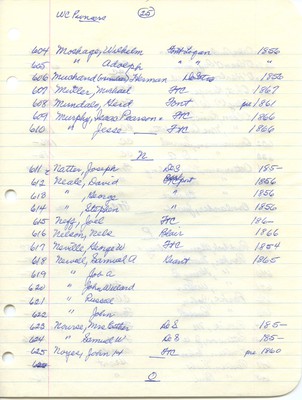 WC Pioneers (25)
604 Moshage, Wilhelm Ft Logan 1856
605 " Adolph " "
606 Muchand Herman DeSoto 1855
607 Muller, Michael FtC 1867
608 Mundale, Gerd Font pre 1861
609 Murphy, Pearson FtC 1866
610 " Jesse FtC 1866
N
611 Natter, Joseph DeS 185-
612 Neale, David 1856
613 " George " 1856
614 " Stephen " 1856
615 Neff, Joel FtC 186-
616 Nelson, Nels Blair 1866
617 Neville, George W FtC 1854
618 Newell, Samuel A 1865
619 " Jas A
620 " John Willard
621 " Russel
622 " John
623 Nourse, Mrs Esther DeS 185-
624 " Samuel W DeS 185-
625 Noyes, John H FtC pre 1860
626
O